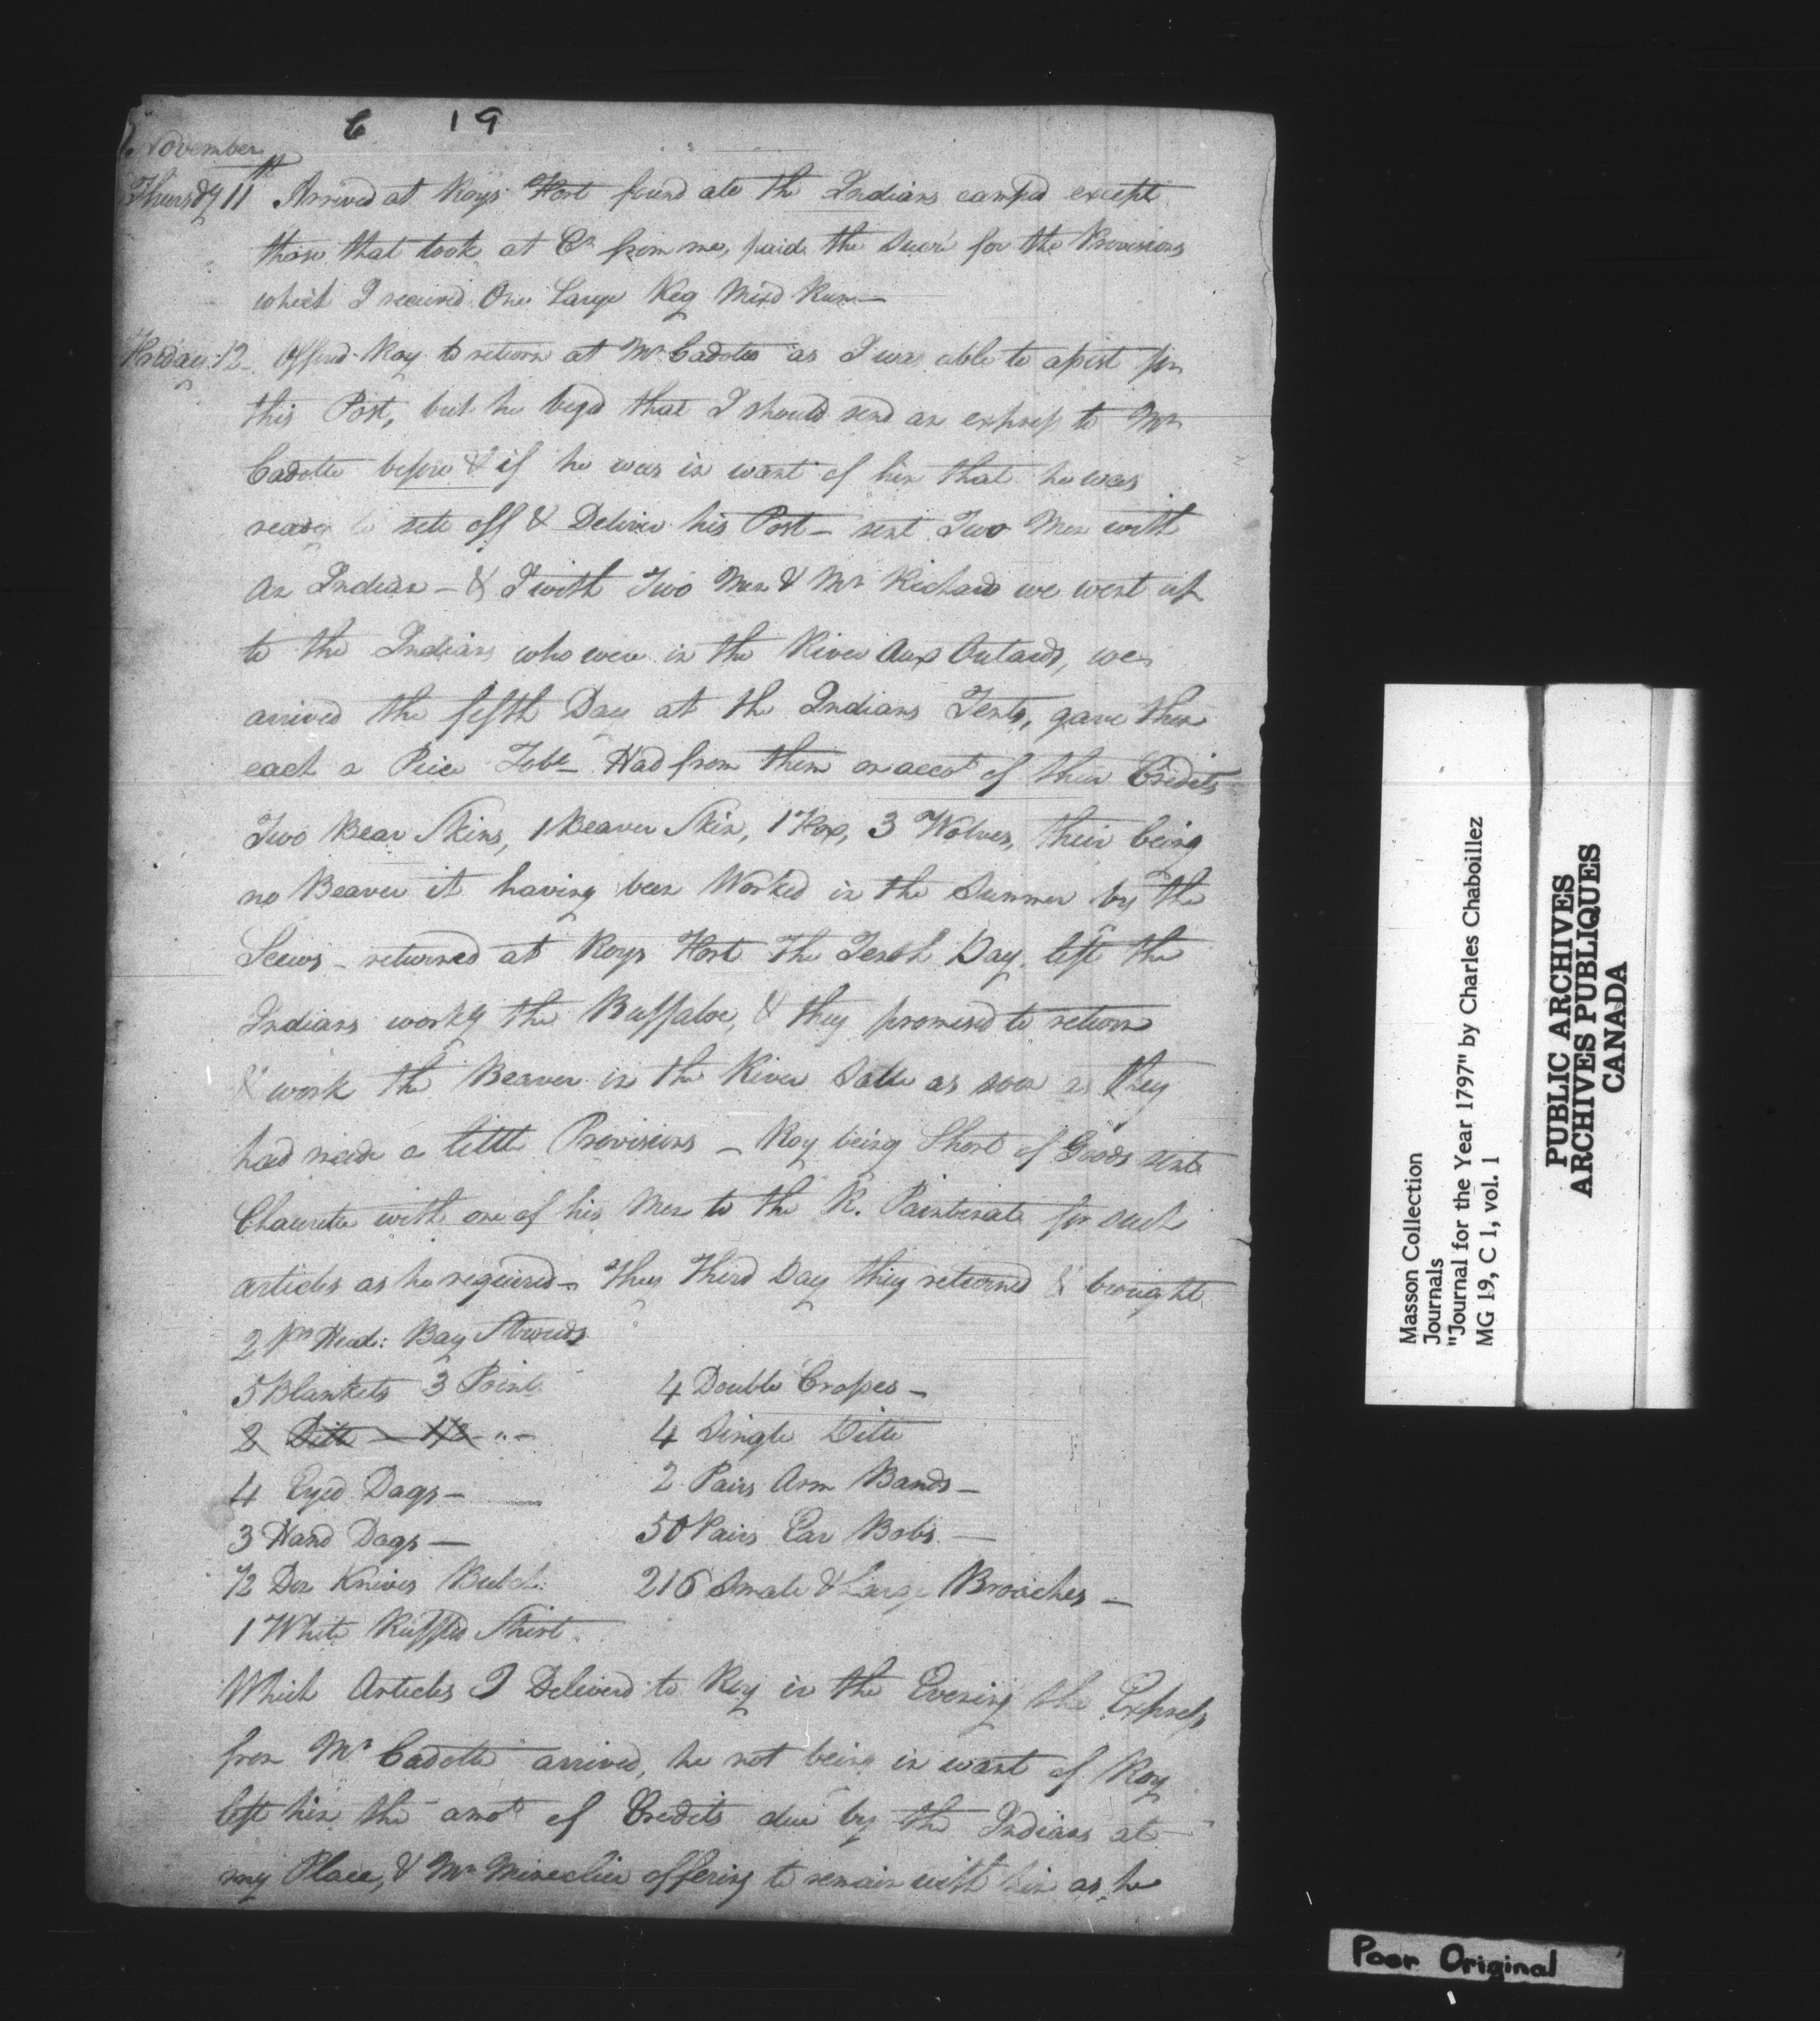 6 19
November
Thursdy 11th Arrived at Roys Fort found all the Indians campd except
those that took at Cr from me, paid the Sucre for the Provisions
which I received One Large Keg Mixd Rum —
Friday 12 — Offerd Roy to return at Mr Cadottes as I was able to assist for
this Post, but he begd that I should send an express to Mr
Cadotte before & if he was in want of him that he was
ready to sett off & Deliver his Post — sent Two Men with
an Indian — & I with Two Men & Mr Richard we went up
to the Indians who were in the River Aux Outards, we
arrived the fifth Day at the Indians Tents, gave them
each a Peice Tobc — Had from them on accot of their Credits
Two Bear Skins, 1 Beaver Skin, 1 Fox, 3 Wolves, their being
no Beaver it having been Worked in the Summer by the
Seews — returned at Roys Fort The Tenth Day left the
Indians workg the Buffaloe, & they promised to return
& work the Beaver in the River Salle as soon as they
had made a little Provisions — Roy being Short of Goods sent
Chaurette with one of his Men to the R. Paintinate for such
articles as he required — They Third Day they returned & brought
2 Ps Bay Strouds
5 Blankets 3 Points
2 Ditto — 1½ " —
4 Eyed Dags —
3 Hand Dags —
½ Doz Knives Butch:
1 White Ruffled Shirt
4 Double Crosses —
4 Single Ditto
2 Pairs Arm Bands —
50 Pairs Ear Bobs —
216 Smale & Large Broaches —
Which Articles I Deliverd to Roy in the Evening the Express
from Mr Cadotte arrived, he not being in want of Roy
left him the amot of Credits due by the Indians at
my Place, & Mr offering to remain with him as he
Masson Collection
Journals
"Journal for the Year 1797" by Charles Chaboillez
MG 19, C 1, vol. 1
PUBLIC ARCHIVES
ARCHIVES PUBLIQUES
CANADA
Poor Original